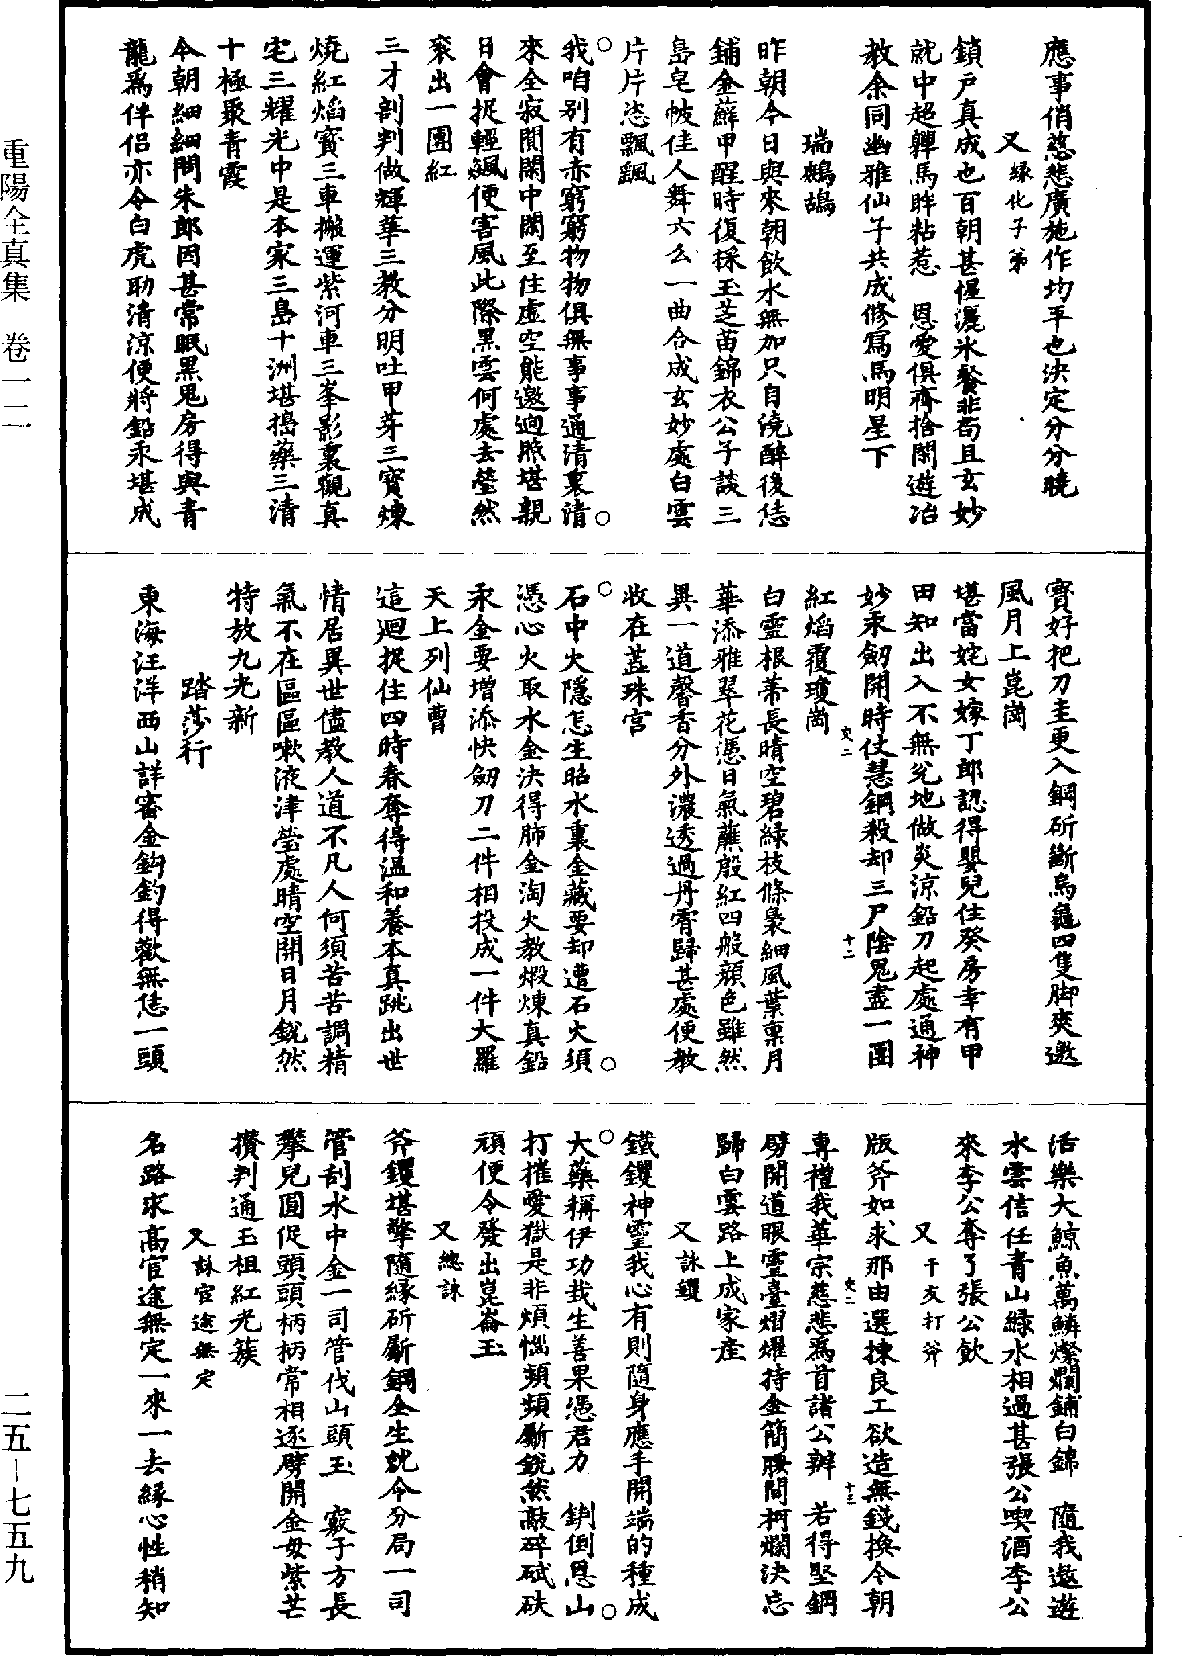 應事俏慈悲廣施作均平也決定分分曉
又 緣化子弟
鎖戶真成也百朝甚惺灑氷餐非苟且玄妙
就中超韗馬眸粘惹　恩愛俱齊捨閑遊冶
教余同幽雅仙子共成修寫馬明星下
瑞鷓鴣
昨朝今日與來朝飲水無加只自澆醉後恁
鋪金蘚甲醒時復採玉芝苗錦衣公子談三
島皂帔佳人舞六幺一曲合成玄妙處白雲
片片恣飄颻
○我咱别有赤窮窮物物俱無事事通清裏清○
來全寂閴閑中閑至住虛空能邀迥照堪親
日會捉輕飈便害風此際黑雲何處去瑩然
衮出一團紅
三才剖判做輝華三教分明吐甲芽三寶煉
燒紅焰寳三車搬運紫河車三峯影裏觀真
宅三耀光中是本家三島十洲堪搗藥三清
十極聚青霞
今朝細細問朱郎因甚常眠黑鬼房得與青
龍爲伴侶亦令白虎助清涼便將鉛汞堪成
寶好把刀圭更入鋼斫斷烏龜四隻脚爽邀
風月上崑崗
堪當姹女嫁丁郎認得嬰兒住癸房幸有甲
田知出入不無兊地做炎涼鉛刀起處通神
妙汞劒開時仗慧鋼殺却三尸陰鬼盡一團
紅焰覆瓊崗
白靈根蒂長晴空碧緑枝條裊細風葉稟月
華添雅翠花憑日氣蘸殷紅四般顔色雖然
異一道馨香分外濃透過丹霄歸甚處便教
收在蘂珠宫
○石中火隱怎生昭水裏金藏要却遭石火須○
憑心火取水金決得肺金淘火教煅煉真鉛
汞金要增添快劒刀二件相投成一件大羅
天上列仙曹
這迴捉住四時春奪得溫和養本真跳出世
情居異世儘教人道不凡人何須苦苦調精
氣不在區區嗽液津瑩處晴空開日月銳然
特放九光新
踏莎行
東海汪洋西山詳審金鈎釣得歡無恁一頭
活樂大鯨魚萬鱗燦爛鋪白錦　隨我遨遊
水雲信任青山綠水相過甚張公喫酒李公
來李公奪了張公飲
又 于友打斧
版斧如求那由選揀良工欲造無錢換今朝
專權我華宗慈悲爲首諸公辦　若得堅鋼
劈開道眼靈臺熠燿持金簡腰間柯爛決忘
歸白雲路上成家產
又 詠钁
鐵钁神靈我心有則隨身應手開端的種成
○大藥稱伊功栽生善果憑君力　𨧱倒恩山○
打摧愛獄是非煩惱頻頻斸銳然敲碎碔砆
頑便令發出崑崙玉
又 總詠
斧钁堪擎隨緣斫斸鋼全生就今分局一司
管刮水中金一司管伐山頭玉　竅子方長
攀兒圓促頭頭柄柄常相逐劈開金母紫芒
攢判通玉祖紅光簇
又 詠官途無定
名路求高官途無定一來一去緣心性稍知
重陽全真集　卷一二
二五—七五九